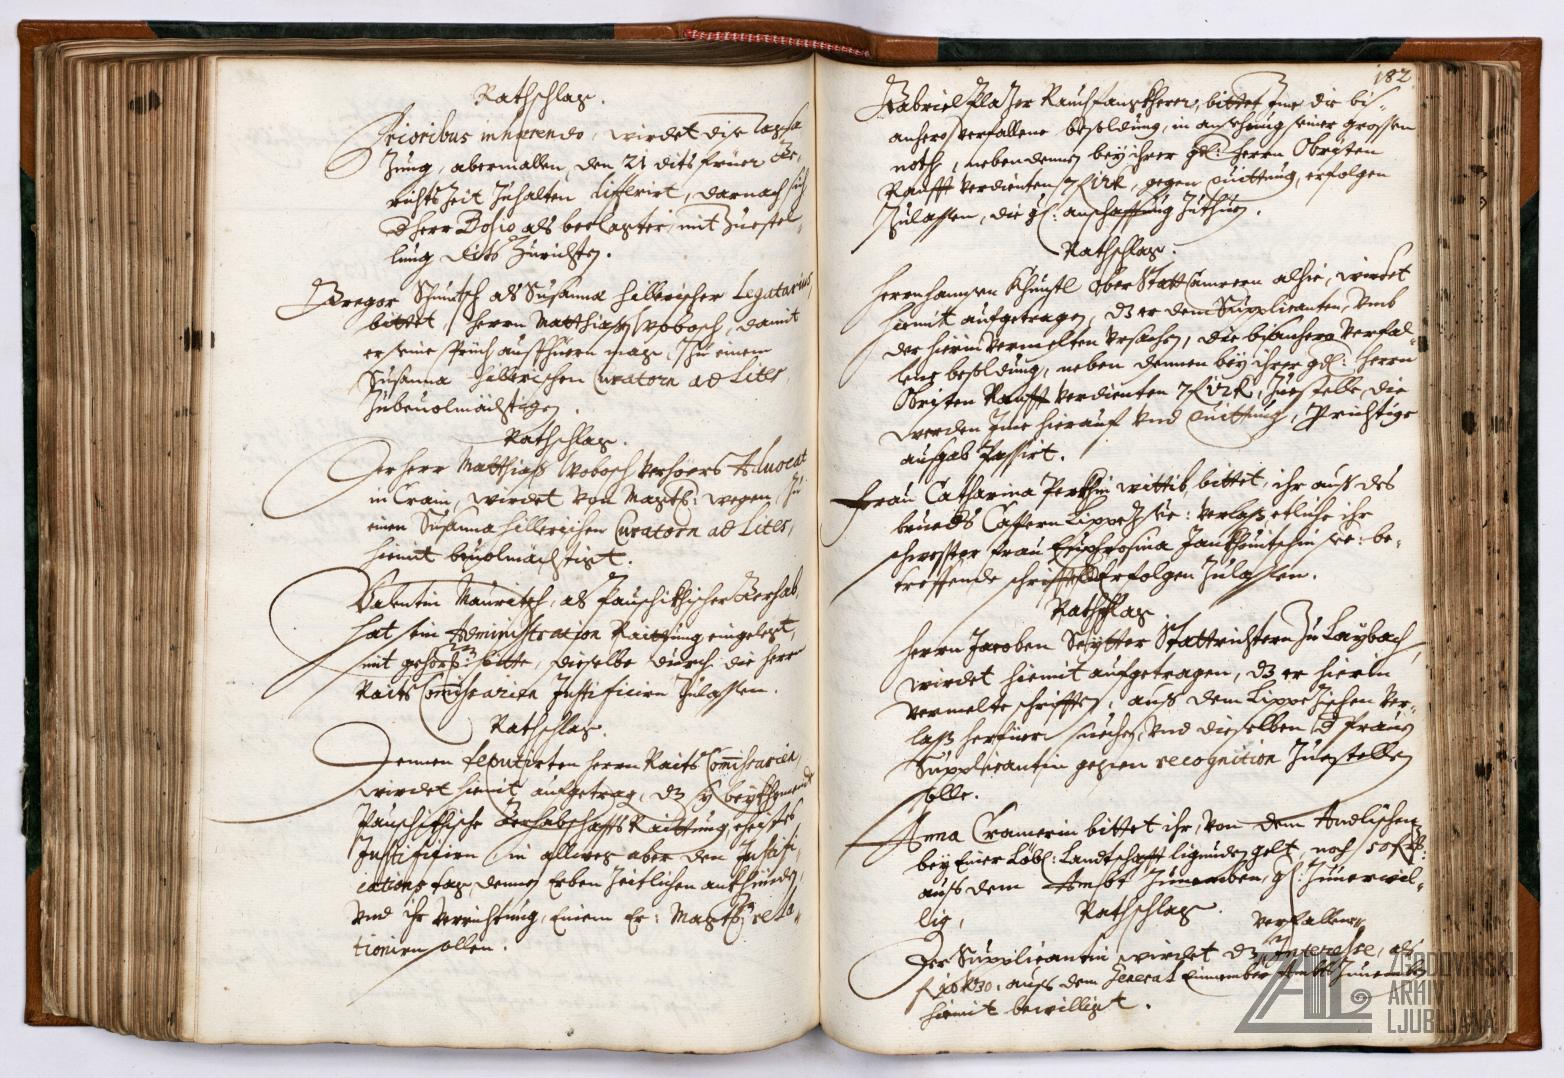 Rathschlag.
Prioribus inhærendo, wirdet dise Tagsa
zung, abermallen, den 21 dits früer Ge„
richts Zeit Zuhalten differirt, darnach sich
d herr Bosio als beclagter, mit Zuestel„
lung dits Zurichten.
Gregor Schuntsch als Susanna Hillericher Legatarius,
bittet, herrn Matthiaß Wobosch, damit
er seine sprüch ausführn mag, Zu einem
Susanna Hillerischen Curatorn ad Lites,
Zubeuolmächtigen.
Rathschlag.
Der herr Matthiaß Wobosch Verhörs Aduocat
in Crain, wirdet von Magts: wegen, Zu
einen Susanna Hillerichen Curatorn ad Lites,
hiemit beuolmächtigt.
Valentin Mauritsch, als Pauschikhischer Gerhab,
hat sein Administration Raittung eingelegt,
mit gehors: bitte, dieselbe durch die herr
Raits Commissarien Justificirn Zulassen.
Rathschlag.
Dennen deputirten herrn Raits Commissarien,
wirdet hiemit aufgetrag, dz sy beykhomende
Pauschikhische Gerhabschaffts Raittung, ehistes
Justificirn, in allweg aber den Justifi„
cations tag, dennen Erben Zeitlichen ankhünden,
vnd ihr verrichtung, Einem Er: Magts: rela„
tionirn sollen.
182
Gabriel Plazer Rauchfangkherer, bittet Ime die bi„
anhero verfallene besoldung, in ansehung seiner grossen
noth, neben dennen bey ihrer gd: herrn Obristen
Raufft verdienten 7 f 12 k, gegen quittung, erfolgen
Zulassen, die gl: anschaffung Zuthuen.
Rathschlag.
Herrn hannsen Khunstl Ober Statt Camrern alhie, wirdet
hiemit aufgetragen, dz er dem Supplicanten, vmb
der hierin vermelten vrsachen, die bisanhero verfal„
lene besoldung, neben dennen bey ihrer gd: herrn
Obristen Raufft verdienten 7 f 12 k, Zuestelle, die
werden Ime hierauf vnd quittung, Per richtige
ausgab Passirt.
Frau Catharina Perkhin wittib, bittet, ihr auß des
brueders Caspern Lippezh see: verlaß etliche ihr
schwester frau Euphrosina Jankhouitschin see: be„
treffende schrifften Erfolgen Zulassen.
Rathschlag.
Herrn Jacoben Schytter Stattrichtern Zu Laybach,
wirdet hiemit aufgetragen, dz er hierin
vermelte schrifften, auß dem Lippezischen ver„
laß herfüer suechen, vnd dieselben d frauen
Supplicantin gegen recognition Zuestellen
solle.
Anna Cramerin bittet ihr, von dem Andlischen,
bey Einer Löbl: Landtschafft ligunden gelt, noch 50 f
auß dem Ambt Zunemben, gl: Zuuerwil„
lig,
Rathschlag.
verfallene
Der Supplicantin wirdet dz Interesse, als
auß dem General Einnember Ambt Zunemben
hiemit bewilligt.
ZGODOVINSKI
ARHIV
LJUBLJANA